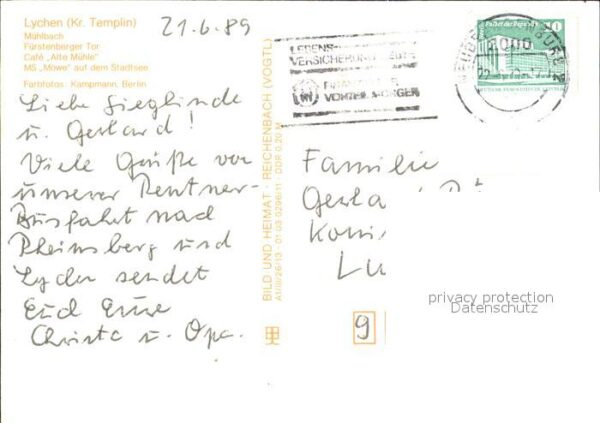 Lychen (Kr. Templin)
Mühlbach
Fürstenberger Tor
Café „Alte Mühle"
MS „Möwe" auf dem Stadtsee
Farbfotos: Kampmann, Berlin
21.6.89
Liebe Sieglinde
u. Gerhard!
Viele Grüße von
unserer Rentner-
Busfahrt nach
Rheinsberg und
Lychen sendet
Euch Eure
Christa u. Opa.
BILD UND HEIMAT · REICHENBACH (VOGTL)
A1/B/26/13 01 03 0296/11 DDR 0,20 M
LEBENS-
VERSICHERUNG HEUTE
FINANZIELLER
VORTEIL MORGEN
10
Palast der Republik
Familie
Gerha
Konr
Lu
9
privacy protection
Datenschutz